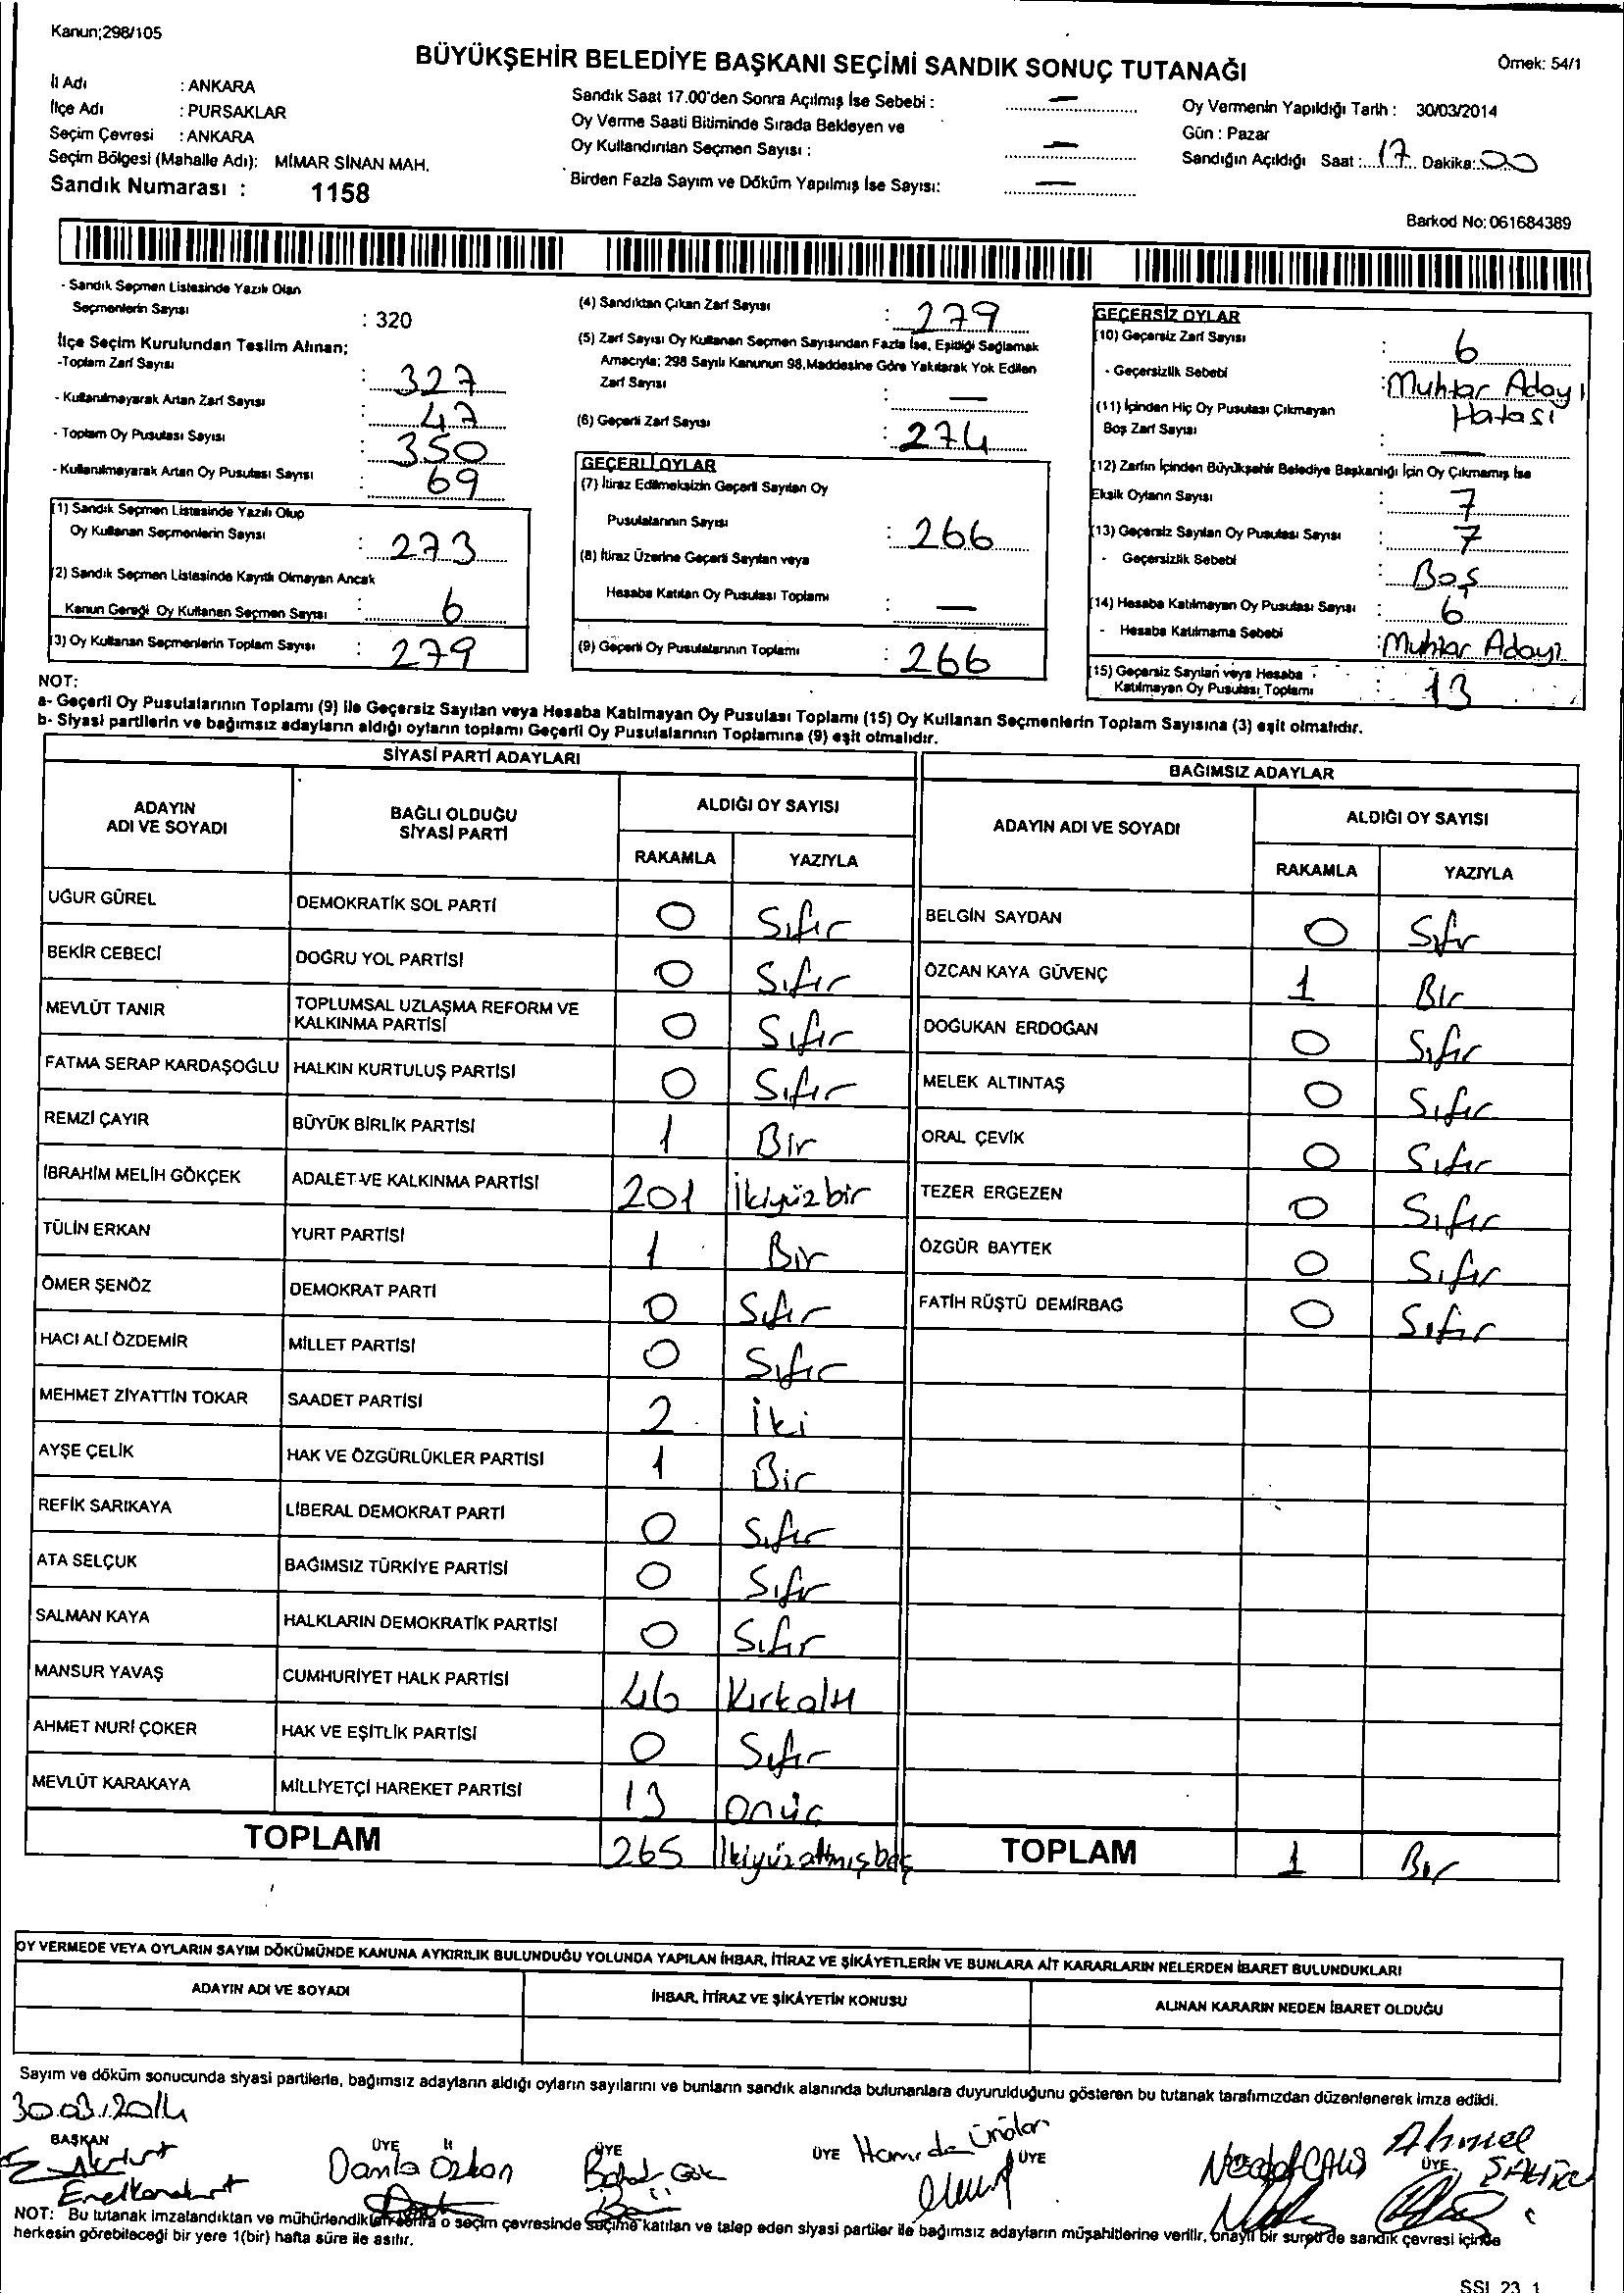 Kanun;298/105
BÜYÜKŞEHİR BELEDİYE BAŞKANI SEÇİMİ SANDIK SONUÇ TUTANAĞI
Örnek: 54/1
İl Adı : ANKARA
İlçe Adı : PURSAKLAR
Seçim Çevresi : ANKARA
Seçim Bölgesi (Mahalle Adı): MİMAR SİNAN MAH.
Sandık Numarası : 1158
Sandık Saat 17.00'den Sonra Açılmış İse Sebebi : —
Oy Verme Saati Bitiminde Sırada Bekleyen ve
Oy Kullandırılan Seçmen Sayısı : —
Birden Fazla Sayım ve Döküm Yapılmış İse Sayısı: —
Oy Vermenin Yapıldığı Tarih : 30/03/2014
Gün : Pazar
Sandığın Açıldığı Saat : 17 Dakika: 00
Barkod No: 061684389
- Sandık Seçmen Listesinde Yazılı Olan
Seçmenlerin Sayısı : 320
İlçe Seçim Kurulundan Teslim Alınan;
-Toplam Zarf Sayısı : 327
- Kullanılmayarak Artan Zarf Sayısı : 47
- Toplam Oy Pusulası Sayısı : 350
- Kullanılmayarak Artan Oy Pusulası Sayısı : 69
(1) Sandık Seçmen Listesinde Yazılı Olup
Oy Kullanan Seçmenlerin Sayısı : 273
(2) Sandık Seçmen Listesinde Kayıtlı Olmayan Ancak
Kanun Gereği Oy Kullanan Seçmen Sayısı : 6
(3) Oy Kullanan Seçmenlerin Toplam Sayısı : 279
(4) Sandıktan Çıkan Zarf Sayısı : 279
(5) Zarf Sayısı Oy Kullanan Seçmen Sayısından Fazla İse, Eşitliği Sağlamak
Amacıyla; 298 Sayılı Kanunun 98.Maddesine Göre Yakılarak Yok Edilen
Zarf Sayısı : —
(6) Geçerli Zarf Sayısı : 274
GEÇERLİ OYLAR
(7) İtiraz Edilmeksizin Geçerli Sayılan Oy
Pusulalarının Sayısı : 266
(8) İtiraz Üzerine Geçerli Sayılan veya
Hesaba Katılan Oy Pusulası Toplamı : —
(9) Geçerli Oy Pusulalarının Toplamı : 266
GEÇERSİZ OYLAR
(10) Geçersiz Zarf Sayısı : 6
- Geçersizlik Sebebi : Muhtar Adayı
Hatası
(11) İçinden Hiç Oy Pusulası Çıkmayan
Boş Zarf Sayısı : —
(12) Zarfın İçinden Büyükşehir Belediye Başkanlığı İçin Oy Çıkmamış İse
Eksik Oyların Sayısı : 7
(13) Geçersiz Sayılan Oy Pusulası Sayısı : 7
- Geçersizlik Sebebi : Boş
(14) Hesaba Katılmayan Oy Pusulası Sayısı : 6
- Hesaba Katılmama Sebebi : Muhtar Adayı
(15) Geçersiz Sayılan veya Hesaba
Katılmayan Oy Pusulası Toplamı : 13
NOT:
a- Geçerli Oy Pusulalarının Toplamı (9) ile Geçersiz Sayılan veya Hesaba Katılmayan Oy Pusulası Toplamı (15) Oy Kullanan Seçmenlerin Toplam Sayısına (3) eşit olmalıdır.
b- Siyasi partilerin ve bağımsız adayların aldığı oyların toplamı Geçerli Oy Pusulalarının Toplamına (9) eşit olmalıdır.
SİYASİ PARTİ ADAYLARI
ADAYIN ADI VE SOYADI
BAĞLI OLDUĞU SİYASİ PARTİ
ALDIĞI OY SAYISI
RAKAMLA YAZIYLA
UĞUR GÜREL DEMOKRATİK SOL PARTİ 0 Sıfır
BEKİR CEBECİ DOĞRU YOL PARTİSİ 0 Sıfır
MEVLÜT TANIR TOPLUMSAL UZLAŞMA REFORM VE
KALKINMA PARTİSİ 0 Sıfır
FATMA SERAP KARDAŞOĞLU HALKIN KURTULUŞ PARTİSİ 0 Sıfır
REMZİ ÇAYIR BÜYÜK BİRLİK PARTİSİ 1 Bir
İBRAHİM MELİH GÖKÇEK ADALET VE KALKINMA PARTİSİ 201 İkiyüzbir
TÜLİN ERKAN YURT PARTİSİ 1 Bir
ÖMER ŞENÖZ DEMOKRAT PARTİ 0 Sıfır
HACI ALİ ÖZDEMİR MİLLET PARTİSİ 0 Sıfır
MEHMET ZİYATTİN TOKAR SAADET PARTİSİ 2 İki
AYŞE ÇELİK HAK VE ÖZGÜRLÜKLER PARTİSİ 1 Bir
REFİK SARIKAYA LİBERAL DEMOKRAT PARTİ 0 Sıfır
ATA SELÇUK BAĞIMSIZ TÜRKİYE PARTİSİ 0 Sıfır
SALMAN KAYA HALKLARIN DEMOKRATİK PARTİSİ 0 Sıfır
MANSUR YAVAŞ CUMHURİYET HALK PARTİSİ 46 Kırkaltı
AHMET NURİ ÇOKER HAK VE EŞİTLİK PARTİSİ 0 Sıfır
MEVLÜT KARAKAYA MİLLİYETÇİ HAREKET PARTİSİ 13 Onüç
TOPLAM 265 İkiyüzaltmışbeş
BAĞIMSIZ ADAYLAR
ADAYIN ADI VE SOYADI
ALDIĞI OY SAYISI
RAKAMLA YAZIYLA
BELGİN SAYDAN 0 Sıfır
ÖZCAN KAYA GÜVENÇ 1 Bir
DOĞUKAN ERDOĞAN 0 Sıfır
MELEK ALTINTAŞ 0 Sıfır
ORAL ÇEVİK 0 Sıfır
TEZER ERGEZEN 0 Sıfır
ÖZGÜR BAYTEK 0 Sıfır
FATİH RÜŞTÜ DEMİRBAĞ 0 Sıfır
TOPLAM 1 Bir
OY VERMEDE VEYA OYLARIN SAYIM DÖKÜMÜNDE KANUNA AYKIRILIK BULUNDUĞU YOLUNDA YAPILAN İHBAR, İTİRAZ VE ŞİKÂYETLERİN VE BUNLARA AİT KARARLARIN NELERDEN İBARET BULUNDUKLARI
ADAYIN ADI VE SOYADI
İHBAR, İTİRAZ VE ŞİKÂYETİN KONUSU
ALINAN KARARIN NEDEN İBARET OLDUĞU
Sayım ve döküm sonucunda siyasi partilerle, bağımsız adayların aldığı oyların sayılarını ve bunların sandık alanında bulunanlara duyurulduğunu gösteren bu tutanak tarafımızdan düzenlenerek imza edildi.
30.03.2014
BAŞKAN ÜYE ÜYE ÜYE ÜYE ÜYE
Damla Özkan
Hamide
Ahmet
NOT: Bu tutanak imzalandıktan ve mühürlendikten sonra o seçim çevresinde seçime katılan ve talep eden siyasi partiler ile bağımsız adayların müşahitlerine verilir, onaylı bir sureti de sandık çevresi içinde
herkesin görebileceği bir yere 1(bir) hafta süre ile asılır.
SSI 23 1